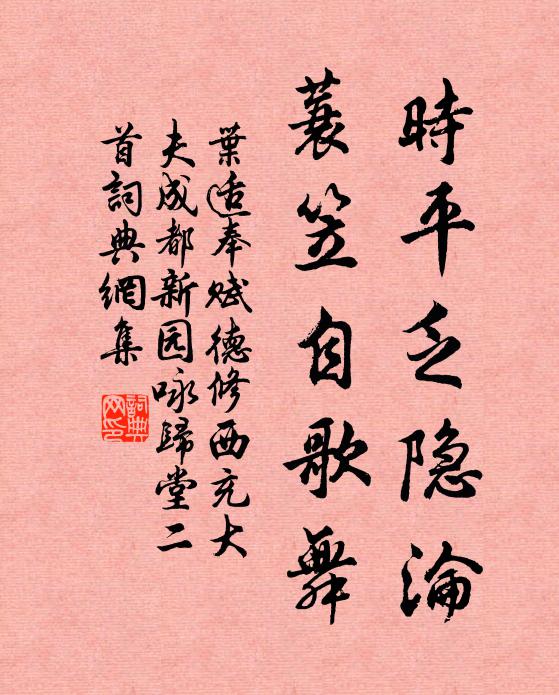 時平乏隐淪
蓑笠自歌舞
葉适奉赋德修西充大
夫成都新园咏歸堂二
首詞典網集
詞典网印